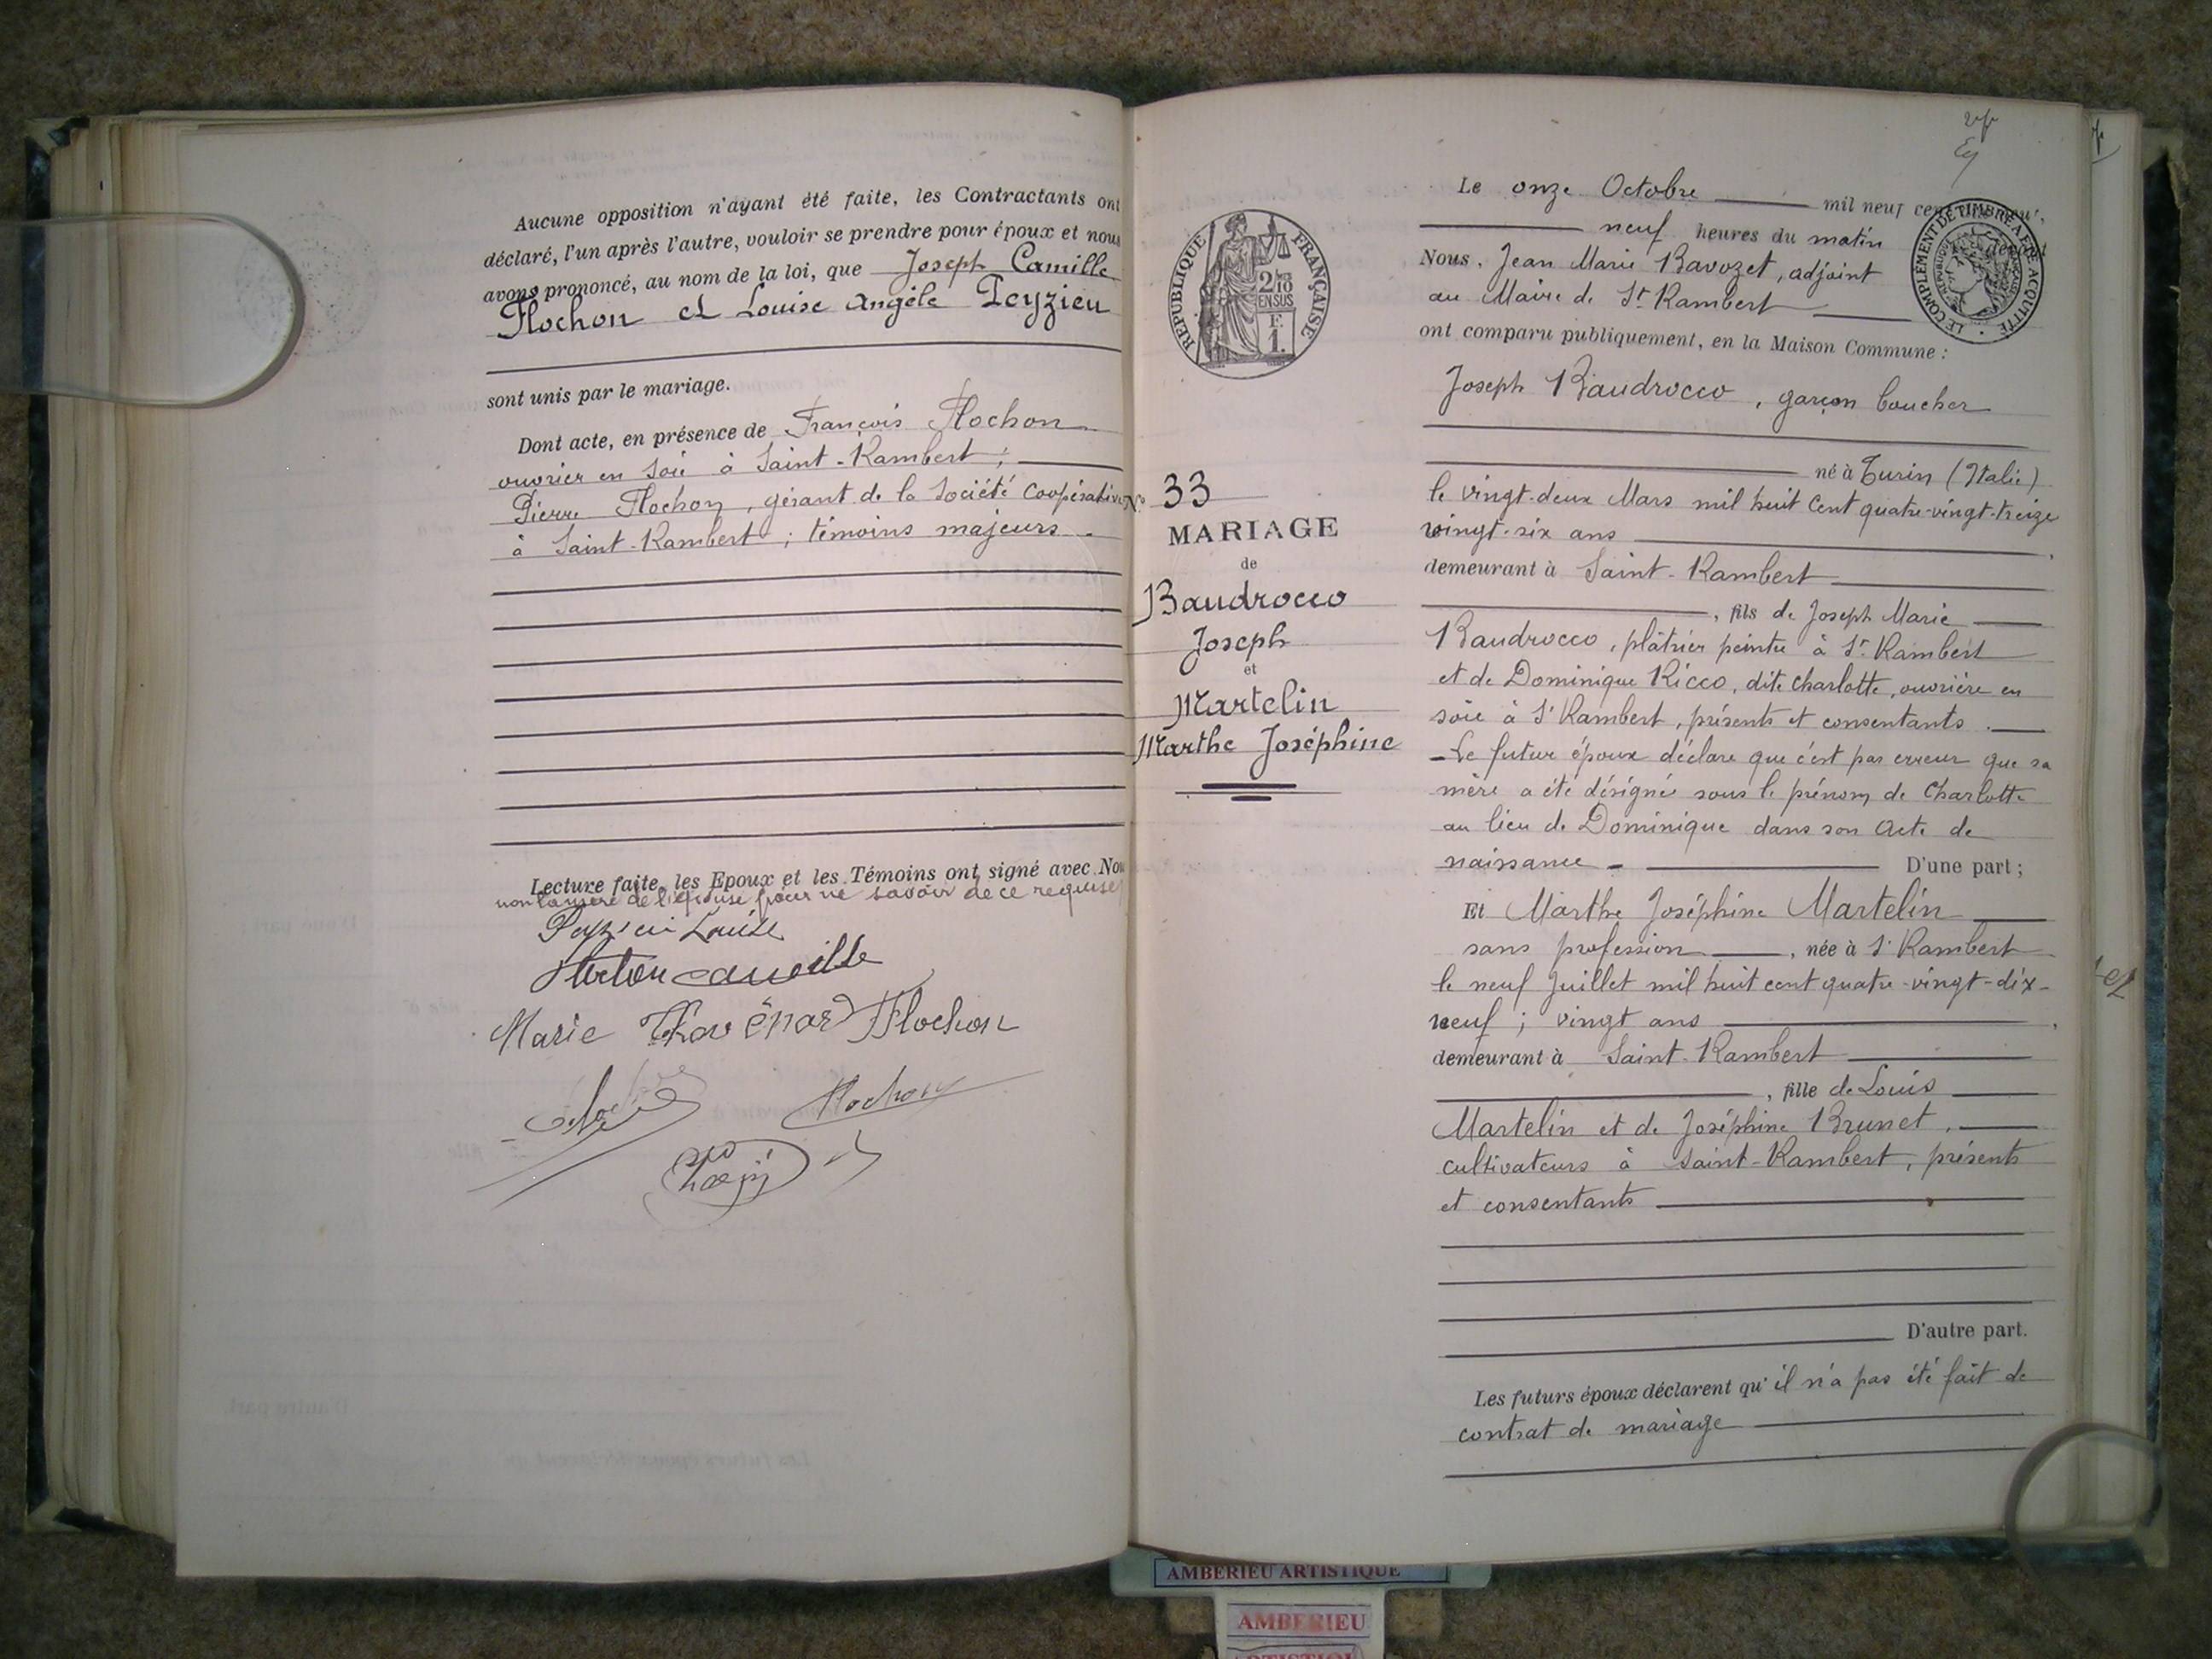 Aucune opposition n'ayant été faite, les Contractants ont
déclaré, l'un après l'autre, vouloir se prendre pour époux et nous
avons prononcé, au nom de la loi, que Joseph Camille
Flochon et Louise Angèle Peyzieu
sont unis par le mariage.
Dont acte, en présence de François Flochon
ouvrier en soie à Saint-Rambert ;
Pierre Flochon, gérant de la Société Coopérative
à Saint-Rambert ; témoins majeurs.
Lecture faite, les Epoux et les Témoins ont signé avec Nou
non la mère de l'épouse pour ne savoir de ce requise
Peyzieu Louise
camille
Marie Thavenar Flochon
Flochon
REPUBLIQUE FRANÇAISE
2/10
EN SUS
F.
1.
N° 33
MARIAGE
de
Baudrocco
Joseph
et
Martelin
Marthe Joséphine
Le onze Octobre mil neuf cent
neuf heures du matin
LE COMPLÉMENT DE TIMBRE A ETE ACQUITTÉ
Nous, Jean Marie Ravozet, adjoint
au Maire de St Rambert
ont comparu publiquement, en la Maison Commune :
Joseph Baudrocco, garçon boucher
né à Turin (Italie)
le vingt-deux Mars mil huit cent quatre-vingt-treize
vingt-six ans
demeurant à Saint-Rambert
, fils de Joseph Marie
Baudrocco, plâtrier peintre à St Rambert
et de Dominique Ricco, dite Charlotte, ouvrière en
soie à St Rambert, présents et consentants.
- Le futur époux déclare que c'est par erreur que sa
mère a été désignée sous le prénom de Charlotte
au lieu de Dominique dans son acte de
naissance - D'une part ;
Et Marthe Joséphine Martelin
sans profession, née à St Rambert
le neuf Juillet mil huit cent quatre-vingt-dix-
neuf ; vingt ans
demeurant à Saint-Rambert
, fille de Louis
Martelin et de Joséphine Brunet,
cultivateurs à Saint-Rambert, présents
et consentants
D'autre part.
Les futurs époux déclarent qu'il n'a pas été fait de
contrat de mariage
AMBERIEU ARTISTIQUE
AMBERIEU